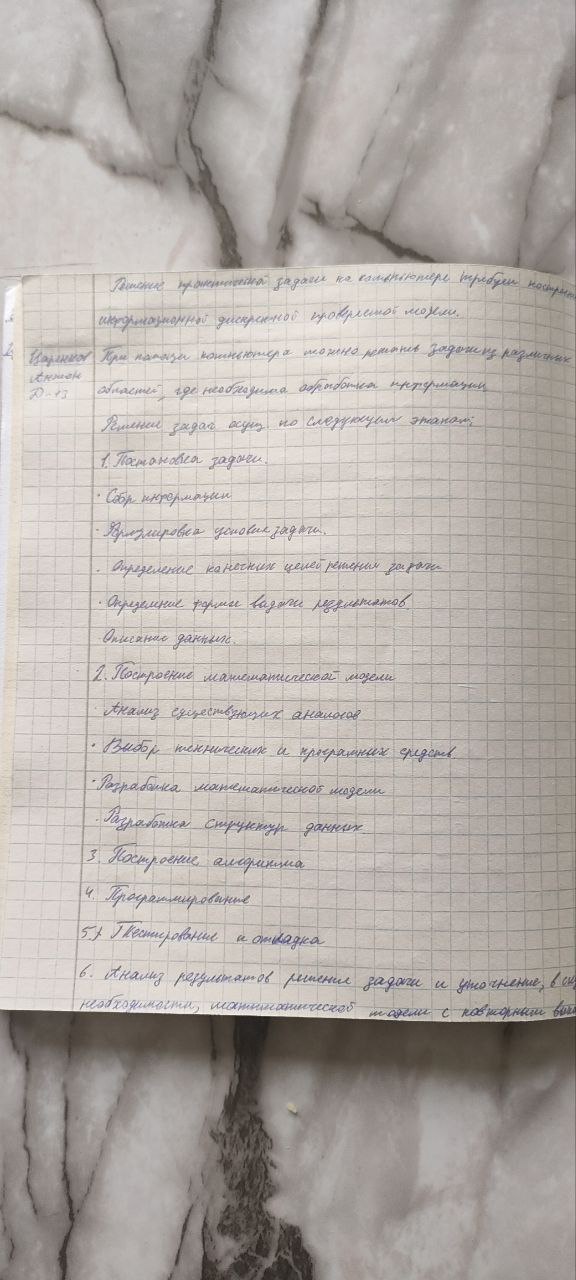 Решение практической задачи на компьютере требует построения
информационной дискретной проверяемой модели.
Царенков
Антон
Д-13
При помощи компьютера можно решать задачи из различных
областей, где необходима обработка информации
Решение задач осущ по следующим этапам:
1. Постановка задачи.
· Сбор информации
· Формулировка условия задачи.
· Определение конечных целей решения задачи
· Определение формы выдачи результатов.
Описание данных.
2. Построение математической модели
· Анализ существующих аналогов
· Выбор технических и програмных средств
· Разработка математической модели
· Разработка структур данных
3. Построение алгоритма
4. Программирование
5. Тестирование и отладка
6. Анализ результатов решения задачи и уточнение, в
необходимости, математической модели с повторным